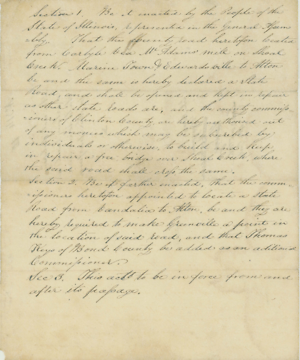 Section 1. Be it enacted by the People of the
State of Illinois, represented in the General Assem-
bly, That the road heretofore located
from Carlyle via Mc Adams mill on Shoal
Creek, Marine Town, Edwardsville to Alton
be and the same is hereby declared a State
Road, and shall be opened and kept in repair
as other State roads are. and the county commis-
sioners of Clinton County are hereby authorized out
of any monies which may be subscribed by
individuals or otherwise, to build and keep
in repair a free bridge over Shoal Creek, where
the said road shall cross the same.
Section 2. Be it further enacted, that the comm
issioners heretofore appointed to locate a State
Road from Vandalia to Alton, be and they are
hereby required to make Greenville a point in
the location of said road, and that Thomas
Keys of Bond County be added as an additional
Commissioner.
Sec 3. This act to be in force from and
after its passage.